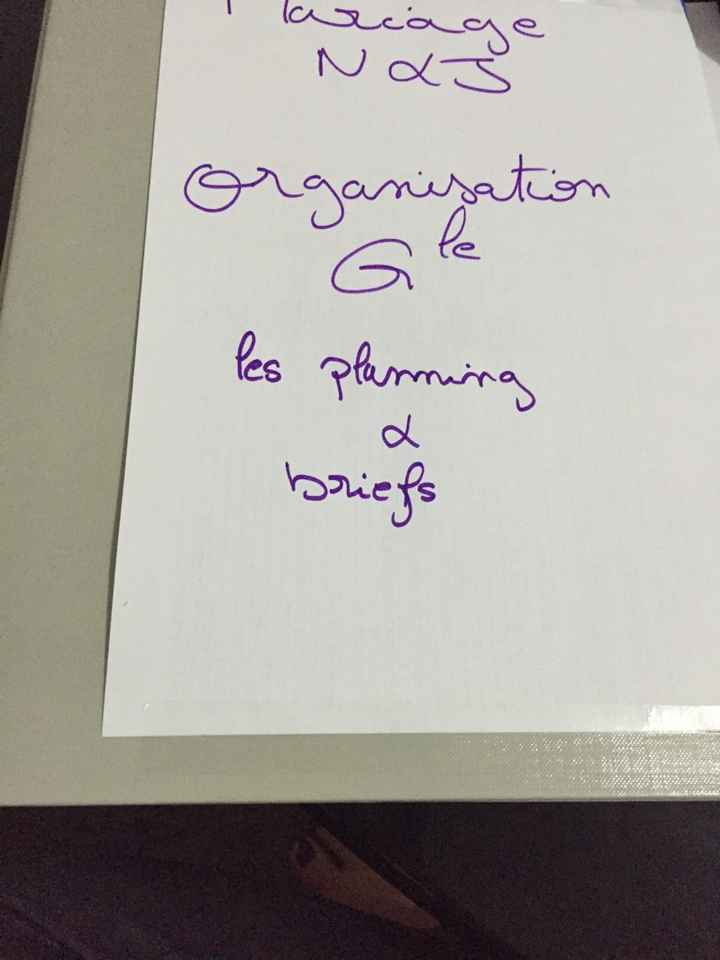 Mariage
N & J
Organisation
Gle
les planning
&
briefs